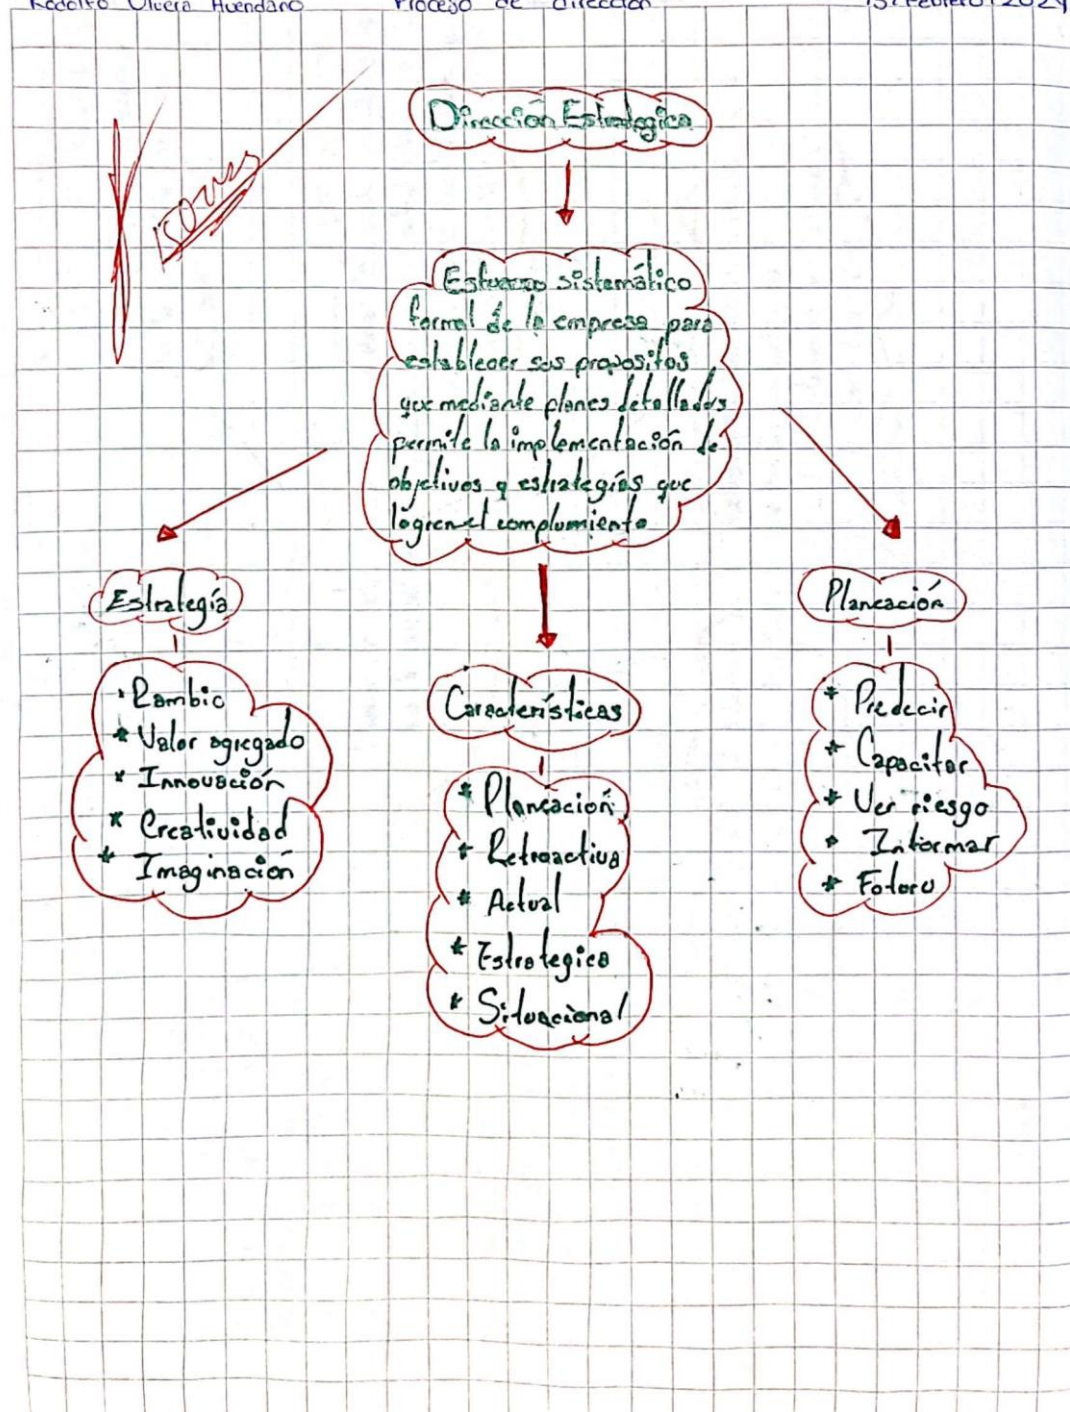 Rodolfo Olvera Avendaño Proceso de dirección 15/Febrero/2024
Dirección Estrategica
Esfuerzo sistemático
formal de la empresa para
establecer sus propositos
que mediante planes detallados
permite la implementación de
objetivos y estrategías que
logren el complumiento
Estrategía
Planeación
* Cambio
* Valor agregado
* Innovación
* Creatividad
* Imaginación
Características
* Planeación
* Retroactiva
* Actual
* Estrategica
* Situacional
* Predecir
* Capacitar
* Ver riesgo
* Informar
* Foturo